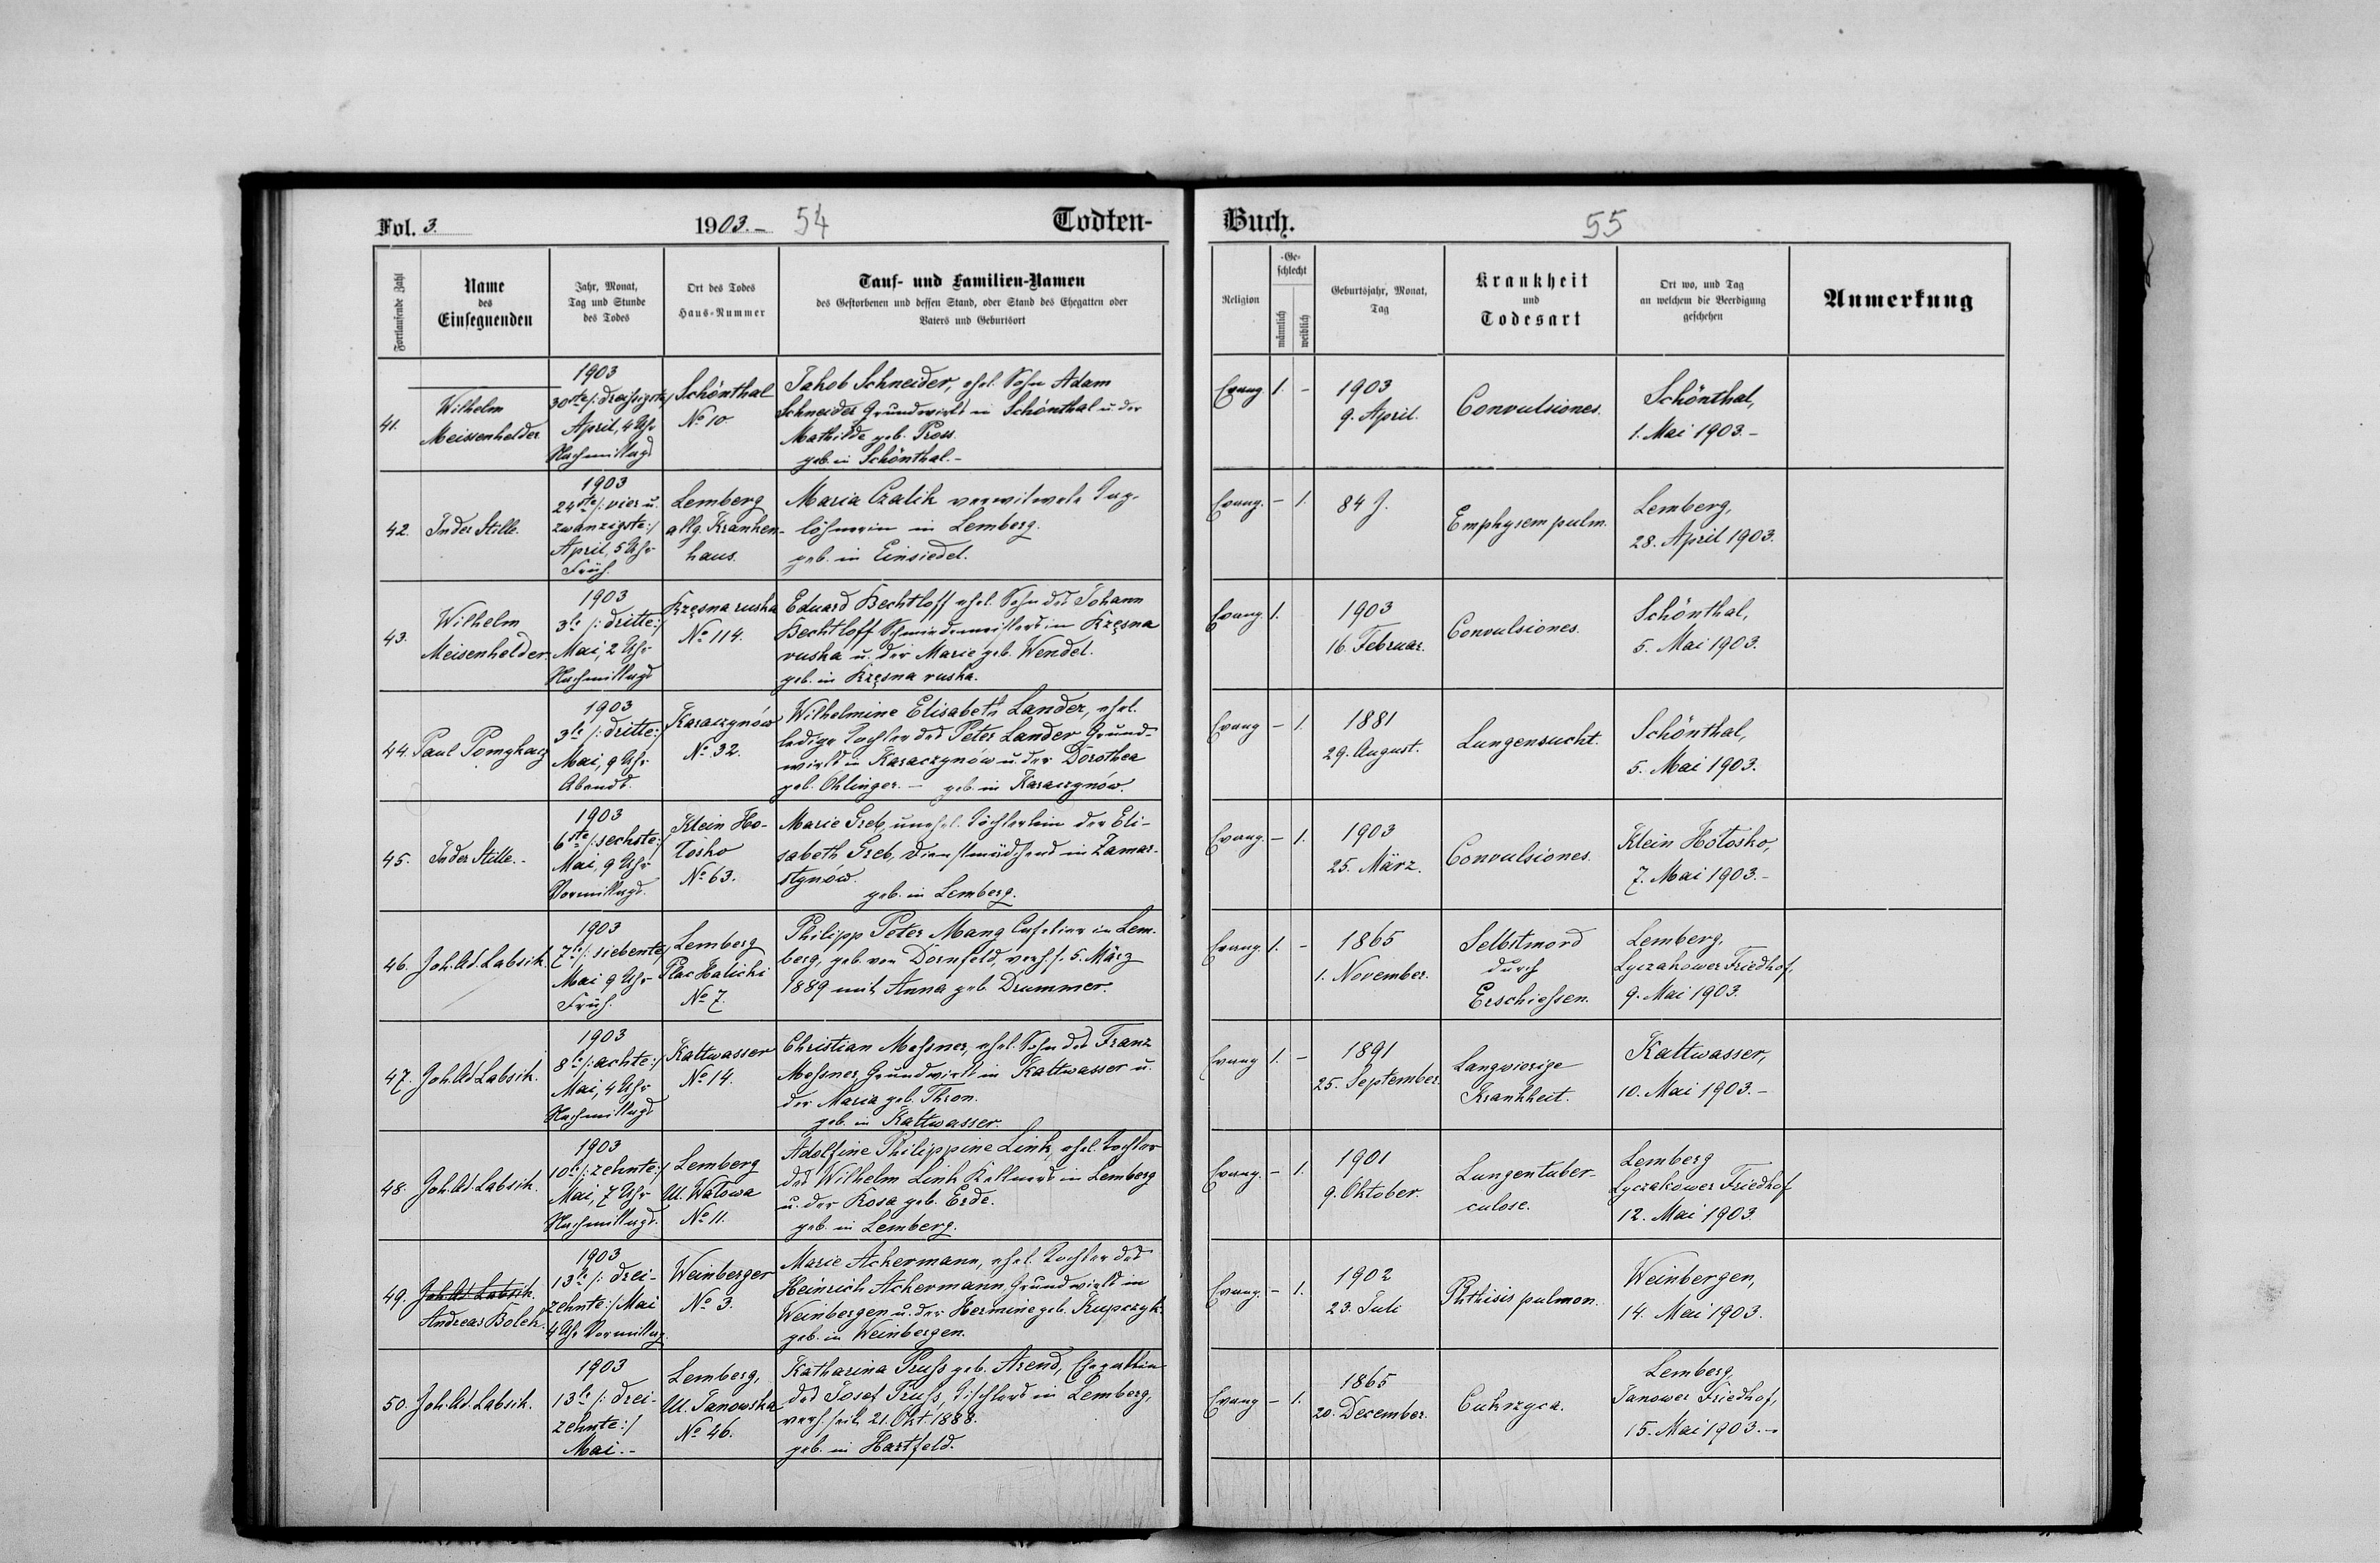 Fol. 3.
1903.- 54
Todten-
Fortlaufende Zahl
Name
des
Einsegnenden
Jahr, Monat,
Tag und Stunde
des Todes
Ort des Todes
Haus-Nummer
Tauf- und Familien-Namen
des Gestorbenen und dessen Stand, oder Stand des Ehegatten oder
Vaters und Geburtsort
41.
Wilhelm
Meissenhelder
1903
30ste /: dreissigste /
April, 4 Uhr
Nachmittags
Schönthal
No 10.
Jakob Schneider, ehel. Sohn Adam
Schneider Grundwirts in Schönthal u. der
Mathilde geb. Pross.
geb. in Schönthal.-
42.
In der Stille.
1903
24ste /: vier u.
zwanzigste :/
April, 5 Uhr
Früh.
Lemberg
allg. Kranken-
haus.
Maria Czalik verwitwete Tag-
löhnerin in Lemberg.
geb. in Einsiedel.
43.
Wilhelm
Meisenhelder.
1903
3te /: dritte :/
Mai, 2 Uhr
Nachmittags
Krzęsna ruska
No 114.
Eduard Bechtloff ehel. Sohn des Johann
Bechtloff Schmiedemeisters in Krzęsna
ruska u. der Marie geb. Wendel.
geb. in Krzęsna ruska.
44.
Paul Pomykacz
1903
3te /: dritte :/
Mai, 9 Uhr
Abends.
Karaczynów
No 32.
Wilhelmine Elisabeth Lander, ehel.
ledige Tochter des Peter Lander Grund-
wirts in Karaczynów u. der Dorothea
geb. Ohlinger. - geb. in Karaczynów.
45.
In der Stille.-
1903
6ste /: sechste :/
Mai, 9 Uhr
Vormittags.
Klein Ho-
łosko
No 63.
Marie Greb, unehel. Töchterlein der Eli-
sabeth Greb, Dienstmädchens in Zamar-
stynów.
geb. in Lemberg.
46.
Joh. Ad. Labsik.
1903
7te /: siebente /
Mai 9 Uhr
Früh.
Lemberg
Plac Halicki
No 7.
Philipp Peter Mang Cafetier in Lem-
berg, geb. von Dornfeld, verh. s. 5. März
1889 mit Anna geb. Drummer.
47.
Joh. Ad Labsik.
1903
8te /: achte :/
Mai, 4 Uhr
Nachmittags
Kaltwasser
No 14.
Christian Messner, ehel. Sohn des Franz
Messner Grundwirts in Kaltwasser u.
der Maria geb. Thron.
geb. in Kaltwasser.
48.
Joh. Ad. Labsik.
1903
10te /: zehnte :/
Mai, 7 Uhr
Nachmittags.
Lemberg
Ul. Wałowa
No 11.
Adolfine Philippine Link, ehel. Tochter
des Wilhelm Link Kellners in Lemberg
u. der Rosa geb. Erde.
geb. in Lemberg.
49.
Joh. Ad. Labsik.
Andreas Bolek.
1903
13te /: drei-
zehnte :/ Mai
4 Uhr Vormittag.
Weinbergen
No 3.
Marie Ackermann, ehel. Tochter des
Heinrich Ackermann Grundwirts in
Weinbergen u. der Hermine geb. Krupczyk.
geb. in Weinbergen.
50.
Joh. Ad. Labsik.
1903
13te /: drei-
zehnte :/
Mai.-
Lemberg,
Ul. Janowska
No 46.
Katharina Pruss geb. Arend, Ehegattin
des Josef Pruss, Tischlers in Lemberg,
verh. seit 21. Okt. 1888.
geb. in Hartfeld.
Buch.
55
Religion
Geschlecht
männlich
weiblich
Geburtsjahr, Monat,
Tag
Krankheit
und
Todesart
Ort wo, und Tag
an welchem die Beerdigung
geschehen
Anmerkung
Evang 1. -
1903
9. April.
Convulsiones.
Schönthal,
1. Mai 1903.-
Evang. - 1.
84 J.
Emphysem pulm.
Lemberg,
28. April 1903.
Evang. 1.
1903
16. Februar.
Convulsiones.
Schönthal,
5. Mai 1903.
Evang - 1.
1881
29. August.
Lungensucht.
Schönthal,
5. Mai 1903.
Evang. - 1.
1903
25. März.
Convulsiones.
Klein Hołosko,
7. Mai 1903.-
Evang. 1. -
1865
1. November.
Selbstmord
durch
Erschiessen.
Lemberg,
Lyczakower Friedhof,
9. Mai 1903.
Evang 1. -
1891
25. September.
Langwierige
Krankheit.
Kaltwasser,
10. Mai 1903.-
Evang. - 1.
1901
9. Oktober.
Lungentuber-
culose.
Lemberg
Lyczakower Friedhof
12. Mai 1903.
Evang. - 1.
1902
23. Juli
Phthisis pulmon.
Weinbergen,
14. Mai 1903.
Evang - 1.
1865
20. December.
Cukrzyca.
Lemberg,
Janower Friedhof,
15. Mai 1903.-